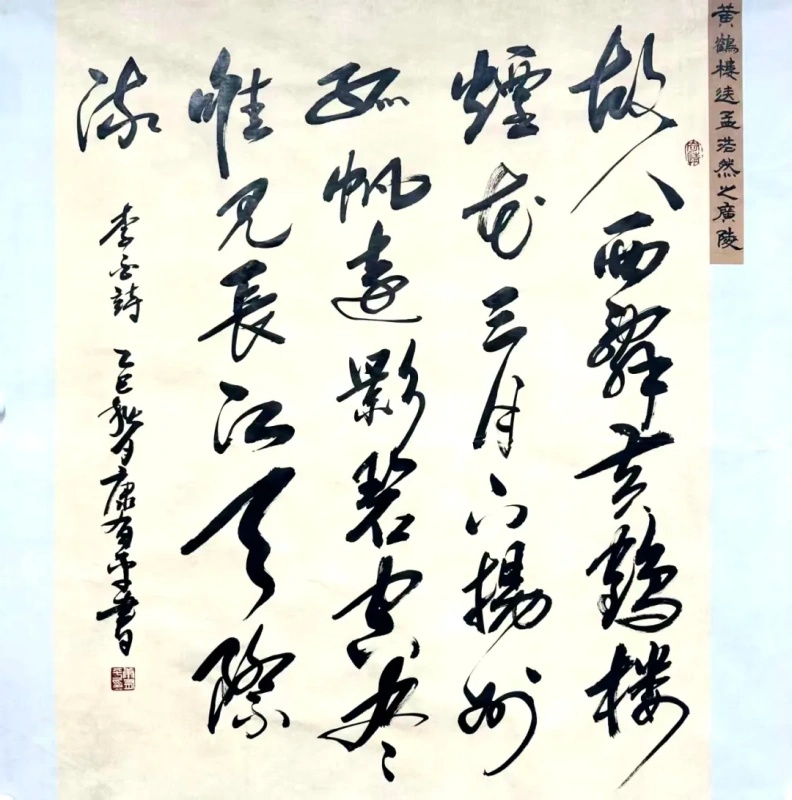 黄鶴楼送孟浩然之廣陵
故人西辭黃鶴樓
煙花三月下揚州
孤帆遠影碧空盡
唯見長江天際
流
李白詩 乙巳秋月康有平書